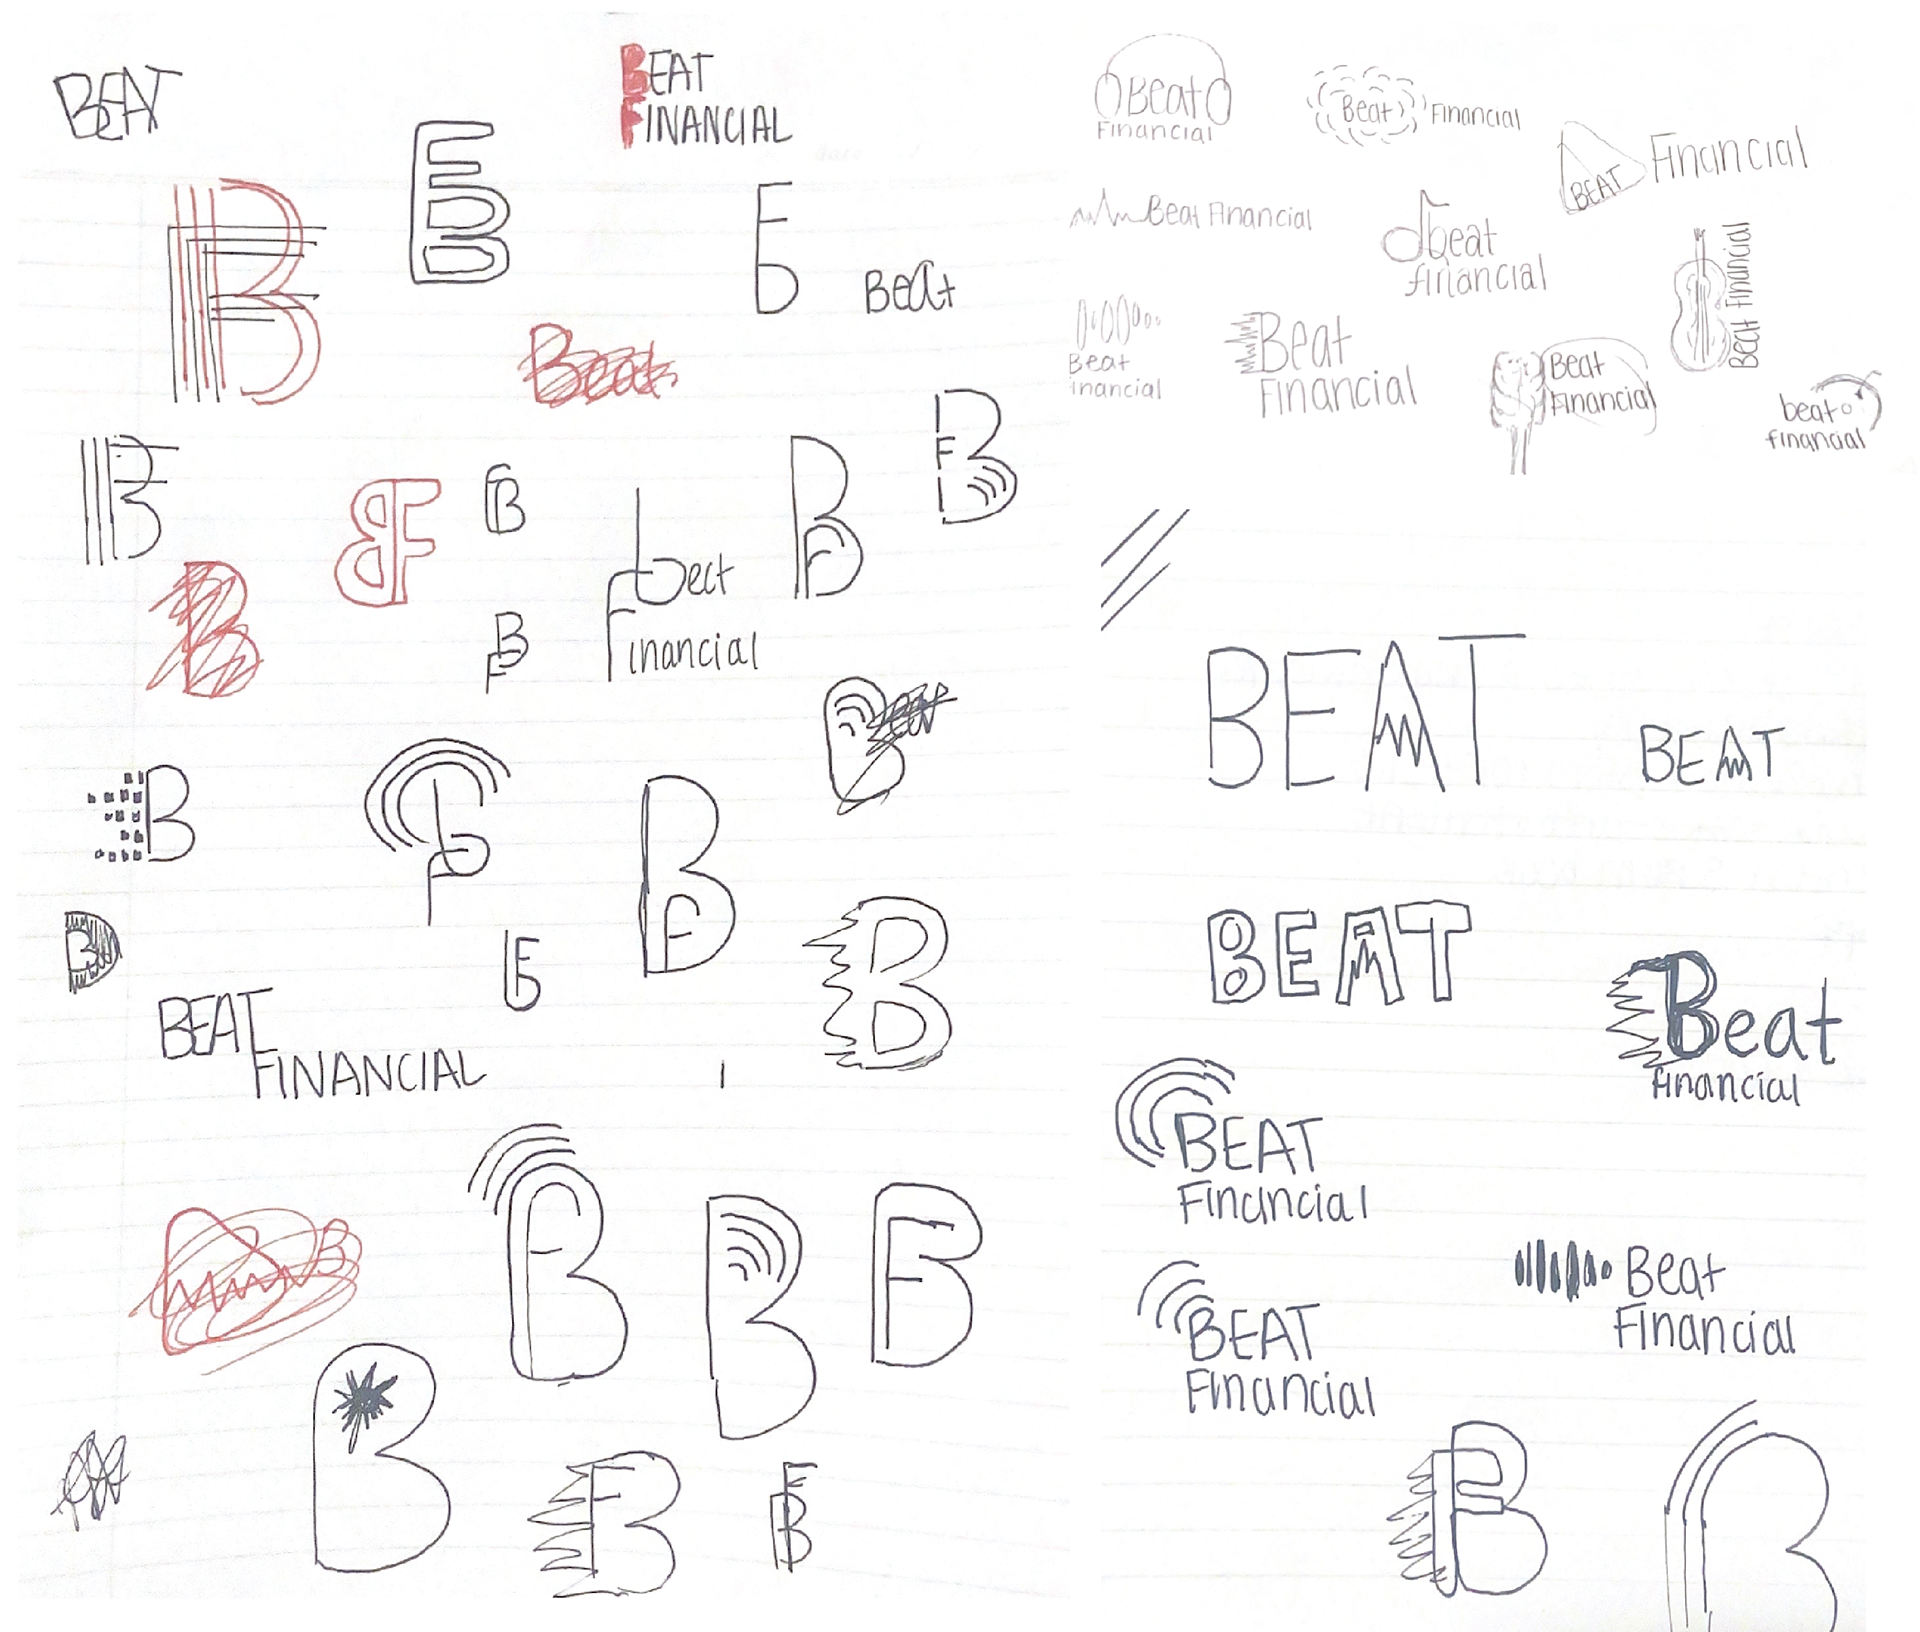 BEAT
BEAT
FINANCIAL
B
FB
FB
Beat
Beat
B
B
BF
FB
B
BF
bect
Financial
BF
FB
B
B
bF
BF
B
B
FB
BEAT
FINANCIAL
B
FB
B
FB
B
B
FB
FB
Beat
Financial
Beat
Financial
BEAT
Financial
Beat Financial
beat
financial
Beat Financial
Beat
inancial
Beat
Financial
Beat
Financial
beat
financial
BEAT
BEAT
BEAT
Beat
financial
BEAT
Financial
Beat
Financial
BEAT
Financial
FB
B